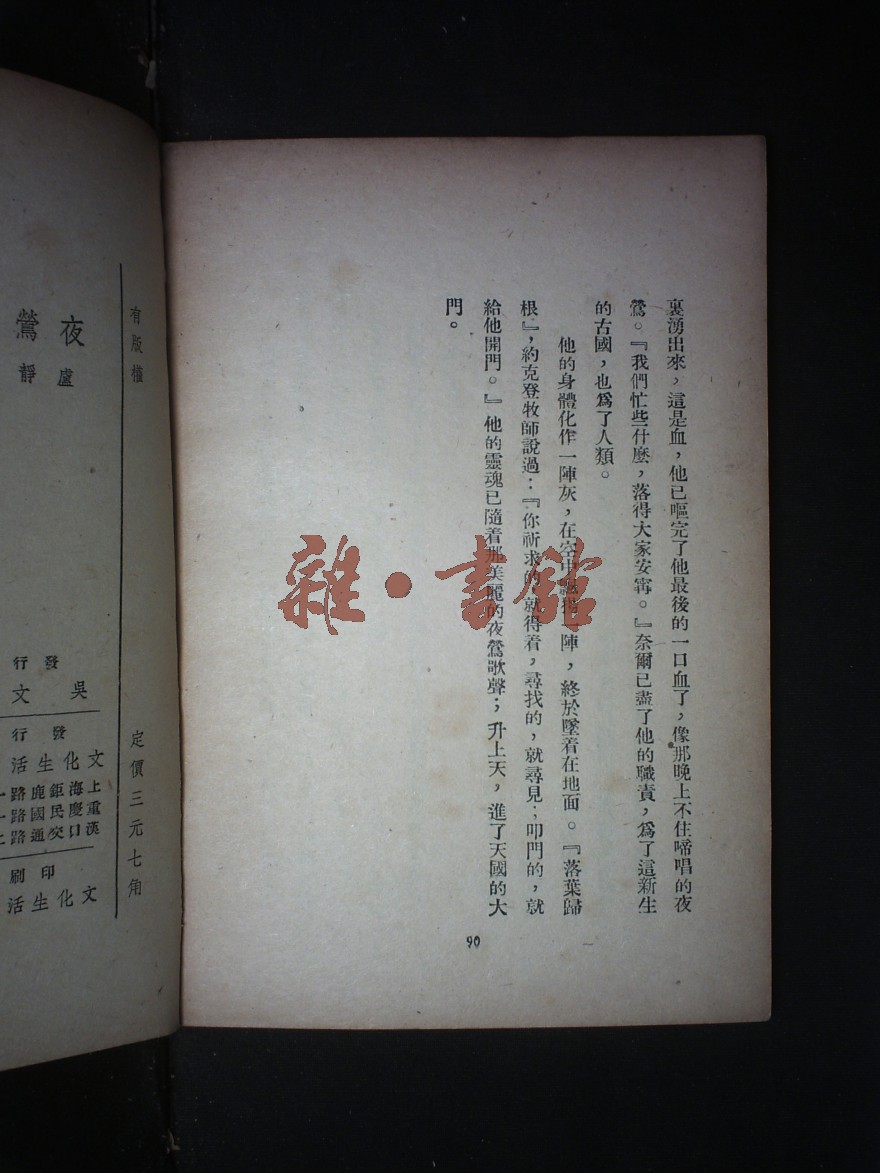 裏湧出來，這是血，他已嘔完了他最後的一口血了，像那晚上不住啼唱的夜
鶯。『我們忙些什麼，落得大家安寗。』奈爾已盡了他的職責，爲了這新生
的古國，也爲了人類。
他的身體化作一陣灰，在空中飄揚一陣，終於墜着在地面。『落葉歸
根』，約克登牧師說過：『你祈求的，就得着，尋找的，就尋見；叩門的，就
給他開門。』他的靈魂已隨着那美麗的夜鶯歌聲；升上天，進了天國的大
門。
90
雜·書館
有版權
定價三元七角
夜鶯
盧靜
發行
吳文
發行
文化生活
上海鉅鹿路一
重慶民國路一
漢口交通路
印刷
文化生活